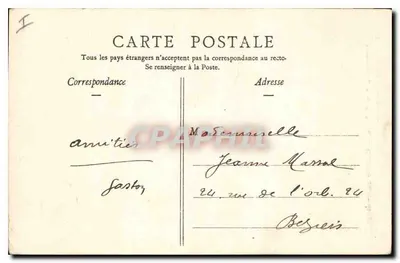 I
CARTE POSTALE
Tous les pays étrangers n'acceptent pas la correspondance au recto-
Se renseigner à la Poste.
Correspondance
Adresse
amitiés
Gaston
Mademoiselle
Jeanne Massol
24 rue de l'orb. 24
Beziers
CPAPHIL